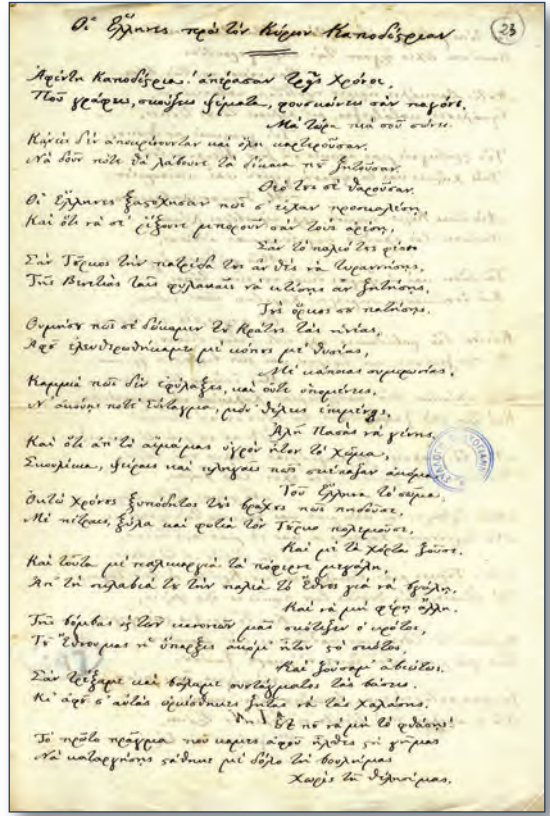 23
Οἱ Ἕλληνες πρὸ τὸν Κύριον Καποδίστριαν
Ἀφέντη Καποδίστρια! ἀπέρασαν τρεῖς χρόνοι,
Ποῦ γράφεις, σκούζεις ψέματα, φουσκώνεις σὰν παγόνι.
Μὰ τώρα πιὰ σοῦ σώνει.
Κανεὶς δὲν ἀποκρίνονταν καὶ ὅλοι καρτεροῦσαν.
Νὰ δοῦν πότε θὰ λάβουνε τὰ δίκαια ποῦ ζητοῦσαν.
Θεό τους σὲ θαροῦσαν.
Οἱ Ἕλληνες ξαστόχησαν πῶς σ' εἶχαν προσκαλέσῃ,
Καὶ ὅτι νὰ σὲ ρίξουνε μποροῦν σὰν τοὺς ἀρέσῃ,
Σὰν τὸ παλιό τες φέσι
Σὰν Τοῦρκος τὴν πατρίδα τες ἂν θὲς νὰ τυραννήσῃς,
Τῆς Βενετιᾶς ταῖς φυλακαῖς νὰ κτίσῃς ἂν ζητήσῃς,
Τοὺς ὅρκους σου πατήσῃς.
Θυμήσου πῶς σὲ δώκαμεν τοῦ Κράτους τὰς ἡνίας,
Ἀφοῦ ἐλευθερωθήκαμε μὲ κόπους μὲ θυσίας,
Μὲ κάποιας συμφωνίας.
Καμμιὰ πῶς δὲν ἐφύλαξες, καὶ οὔτε ὑπομένεις,
Ν' ἀκούῃς ποτὲ Σύνταγμα, μόν' θέλεις ἐπιμένῃς,
Ἀλῆ Πασᾶς νὰ γένῃς.
Καὶ ὅτι ἀπ' τὸ αἷμα μας ὑγρὸν ἦτον τὸ χῶμα,
Σκουλίκια, ψείραις καὶ πληγαῖς ποῦ σκέπαζαν ἀκόμα
Τοῦ Ἕλληνα τὸ σῶμα,
Ὀκτὼ χρόνους ξυπόλητος τοὺς βράχους ποῦ πηδοῦσε,
Μὲ πέτραις, ξύλα καὶ φωτιὰ τὸν Τοῦρκο πολεμοῦσε,
Καὶ μὲ τὰ χόρτα ζοῦσε.
Καὶ τοῦτα μὲ παλικαριὰ τὰ πόφερνε μεγάλη,
Ἀπ' τὴ σκλαβιά του τὴν παλιὰ τὸ ἔθνος γιὰ νὰ βγάλῃ,
Καὶ νὰ μὴ φέρῃ ἄλλη.
Τῆς βόμβας κ' τῶν κανονιῶν μᾶς σκότιζεν ὁ κρότος,
Τοῦ Ἔθνους μας ἡ ὕπαρξις ἀκόμ' ἦταν στὸ σκότος,
Καὶ ζούσαμε ἀβεύτως.
Σὰν τρέξαμε καὶ βάλαμε συντάγματος τὰς βάσεις.
Κι' ἀφοῦ σ' αὐτὰς ὡρκίσθηκες ζητᾷς νὰ τὰς χαλάσῃς.
νὰ μὴ τὸ φθάσῃς!
Τὸ πρῶτο πρᾶγμα ποῦ καμες ἀφοῦ ἦλθες στὴ γῆ μας
Νὰ καταργήσῃς στάθηκε μὲ δόλο τὴ βουλή μας
Χωρὶς τὴ θέλησί μας.